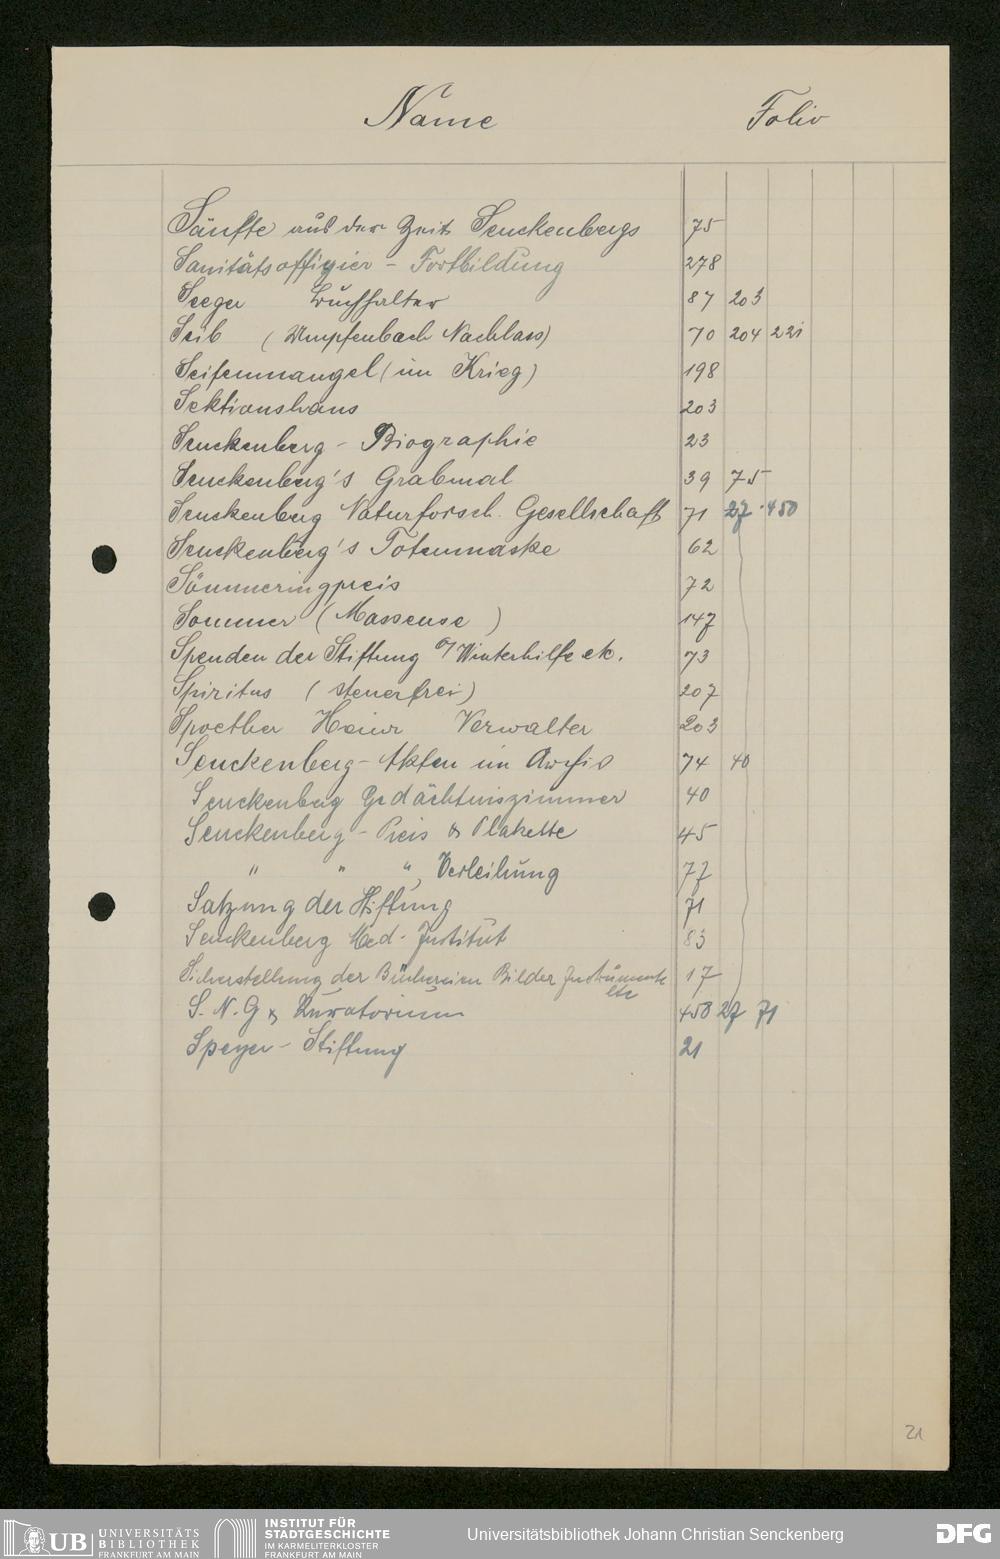 Name Folio
Sänfte aus der Zeit Senckenbergs 75
Sanitätsoffizier - Fortbildung 278
Seeger Buchhalter 87 203
Seib (Umpfenbach Nachlass) 70 204 221
Seifenmangel (im Krieg) 198
Sektionshaus 203
Senckenberg - Biographie 23
Senckenberg's Grabmal 39 75
Senckenberg Naturforsch. Gesellschaft 71 27 · 450
Senckenberg's Totenmaske 62
Sömmeringpreis 72
Sommer (Masseuse) 147
Spenden der Stiftung a/ Winterhilfe etc. 73
Spiritus (steuerfrei) 207
Heinr Verwalter 203
Senckenberg - Akten im Archiv 74 40
Senckenberg Gedächtniszimmer 40
Senckenberg - Preis & Plakette 45
" " ", Verleihung 77
Satzung der Stiftung 71
Senckenberg Med. Institut 83
Sicherstellung der Büchereien Bilder Instrumente etc 17
S. N. G & Kuratorium 450 27 71
Speyer - Stiftung 21
21
UB UNIVERSITÄTS
BIBLIOTHEK
FRANKFURT AM MAIN
INSTITUT FÜR
STADTGESCHICHTE
IM KARMELITERKLOSTER
FRANKFURT AM MAIN
Universitätsbibliothek Johann Christian Senckenberg
DFG